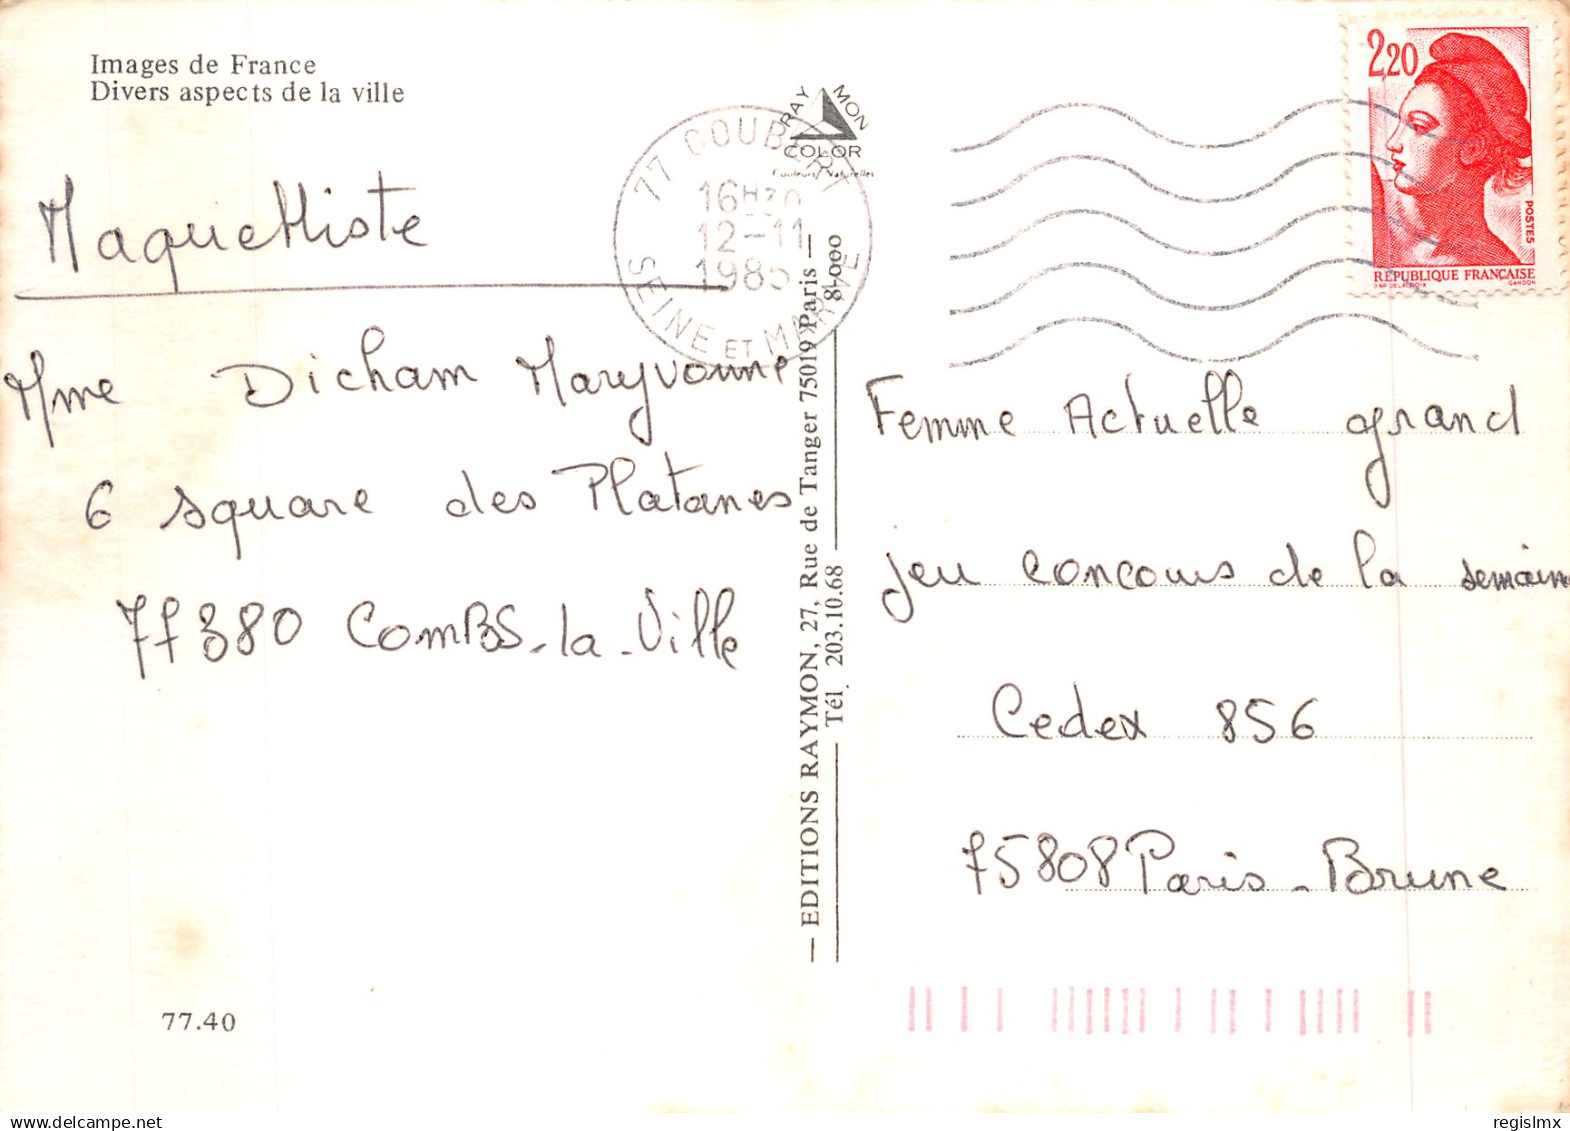 Images de France
Divers aspects de la ville
Maquettiste
Mme Dicham Maryvonne
6 square des Platanes
77380 ComBS-la-Ville
77.40
RAYMON
COLOR
Couleurs Naturelles
77 COUBERT
16H30
12-11
1985
SEINE ET MARNE
— EDITIONS RAYMON, 27, Rue de Tanger 75019 Paris —
Tél. 203.10.68
81-000
2,20
POSTES
RÉPUBLIQUE FRANÇAISE
D'AP. DELACROIX GANDON
Femme Actuelle grand
jeu concours de la semaine
Cedex 856
75808 Paris-Brune
regislmx